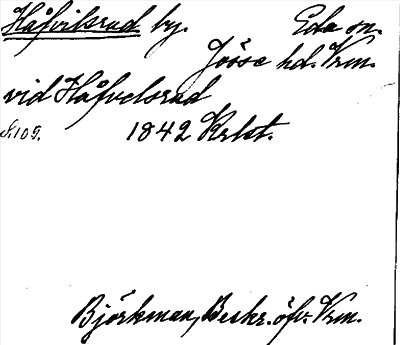 Håfvilsrud by. Eda sn.
Jösse hd. Vrm.
vid Håfvelsrud
S. 109. 1842 Krlst.
Björkman, Beskr. öfv. Vrm.